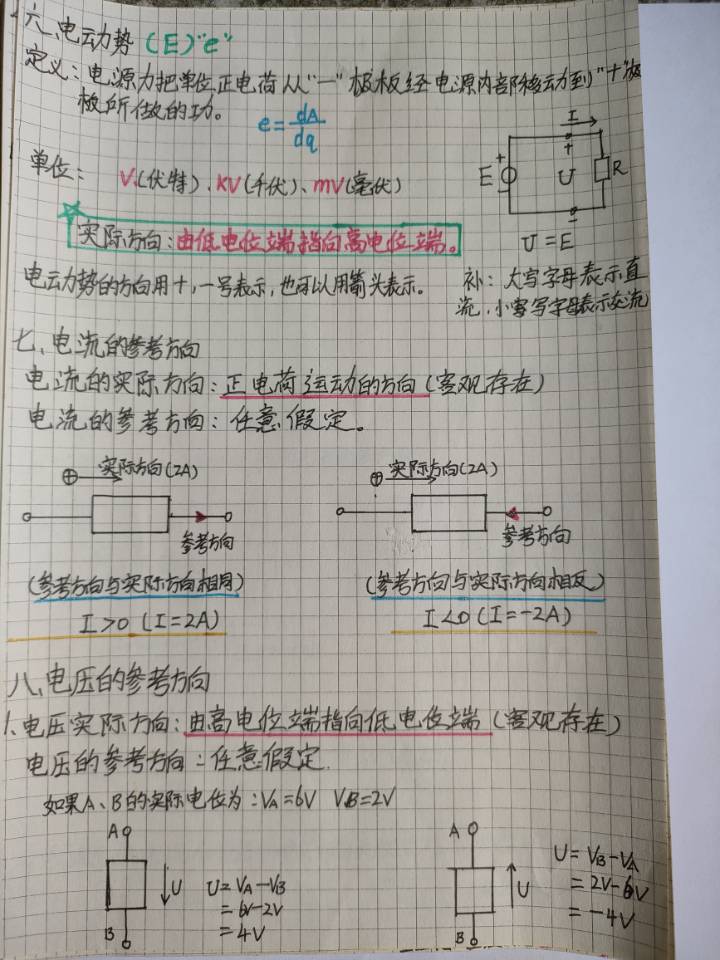 六、电动势 (E)"e"
定义：电源力把单位正电荷从"一"极板经电源内部移动到"+"极
板所做的功。
e=dA/dq
单位：V(伏特)、KV(千伏)、mV(毫伏)
I
+
E
−
+
U
−
R
U=E
实际方向：由低电位端指向高电位端。
电动势的方向用+,一号表示，也可以用箭头表示。
补：大写字母表示直
流，小写字母表示交流
七、电流的参考方向
电流的实际方向：正电荷运动的方向(客观存在)
电流的参考方向：任意假定。
⊕ 实际方向(2A)
参考方向
(参考方向与实际方向相同)
I>0 (I=2A)
⊕ 实际方向(2A)
参考方向
(参考方向与实际方向相反)
I<0 (I=-2A)
八、电压的参考方向
1、电压实际方向：由高电位端指向低电位端(客观存在)
电压的参考方向：任意假定.
如果A、B的实际电位为：VA=6V VB=2V
A
U
B
U=VA-VB
=6V-2V
=4V
A
U
B
U=VB-VA
=2V-6V
=-4V